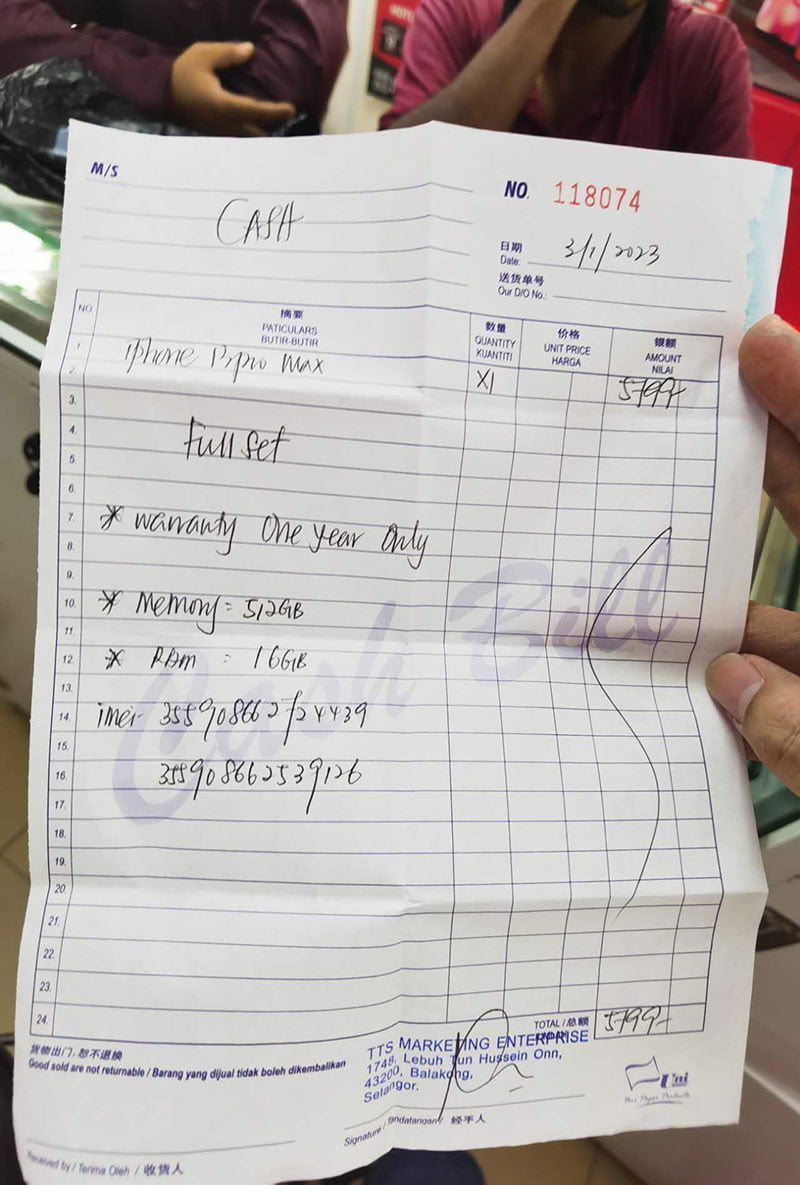 M/S
CASH
NO. 118074
日期
Date: 3/1/2023
送货单号
Our D/O No.:
NO.
摘要
PATICULARS
BUTIR-BUTIR
数量
QUANTITY
KUANTITI
价格
UNIT PRICE
HARGA
银额
AMOUNT
NILAI
1.
2.
iphone 13pro max
X1
5799
3.
4.
Full set
5.
6.
7.
* warranty One year Only
8.
9.
10.
* Memory = 512GB
11.
12.
* RAM : 16GB
13.
14.
imei- 355908662724439
15.
16.
355908662539126
17.
18.
19.
20.
21.
22.
23.
24.
Cash Bill
TOTAL / 总额
5799
货物出门, 恕不退换
Good sold are not returnable / Barang yang dijual tidak boleh dikembalikan
TTS MARKETING ENTERPRISE
1748, Lebuh Tun Hussein Onn,
43200, Balakong,
Selangor.
Signature / Tandatangan / 经手人
Received by / Terima Oleh / 收货人